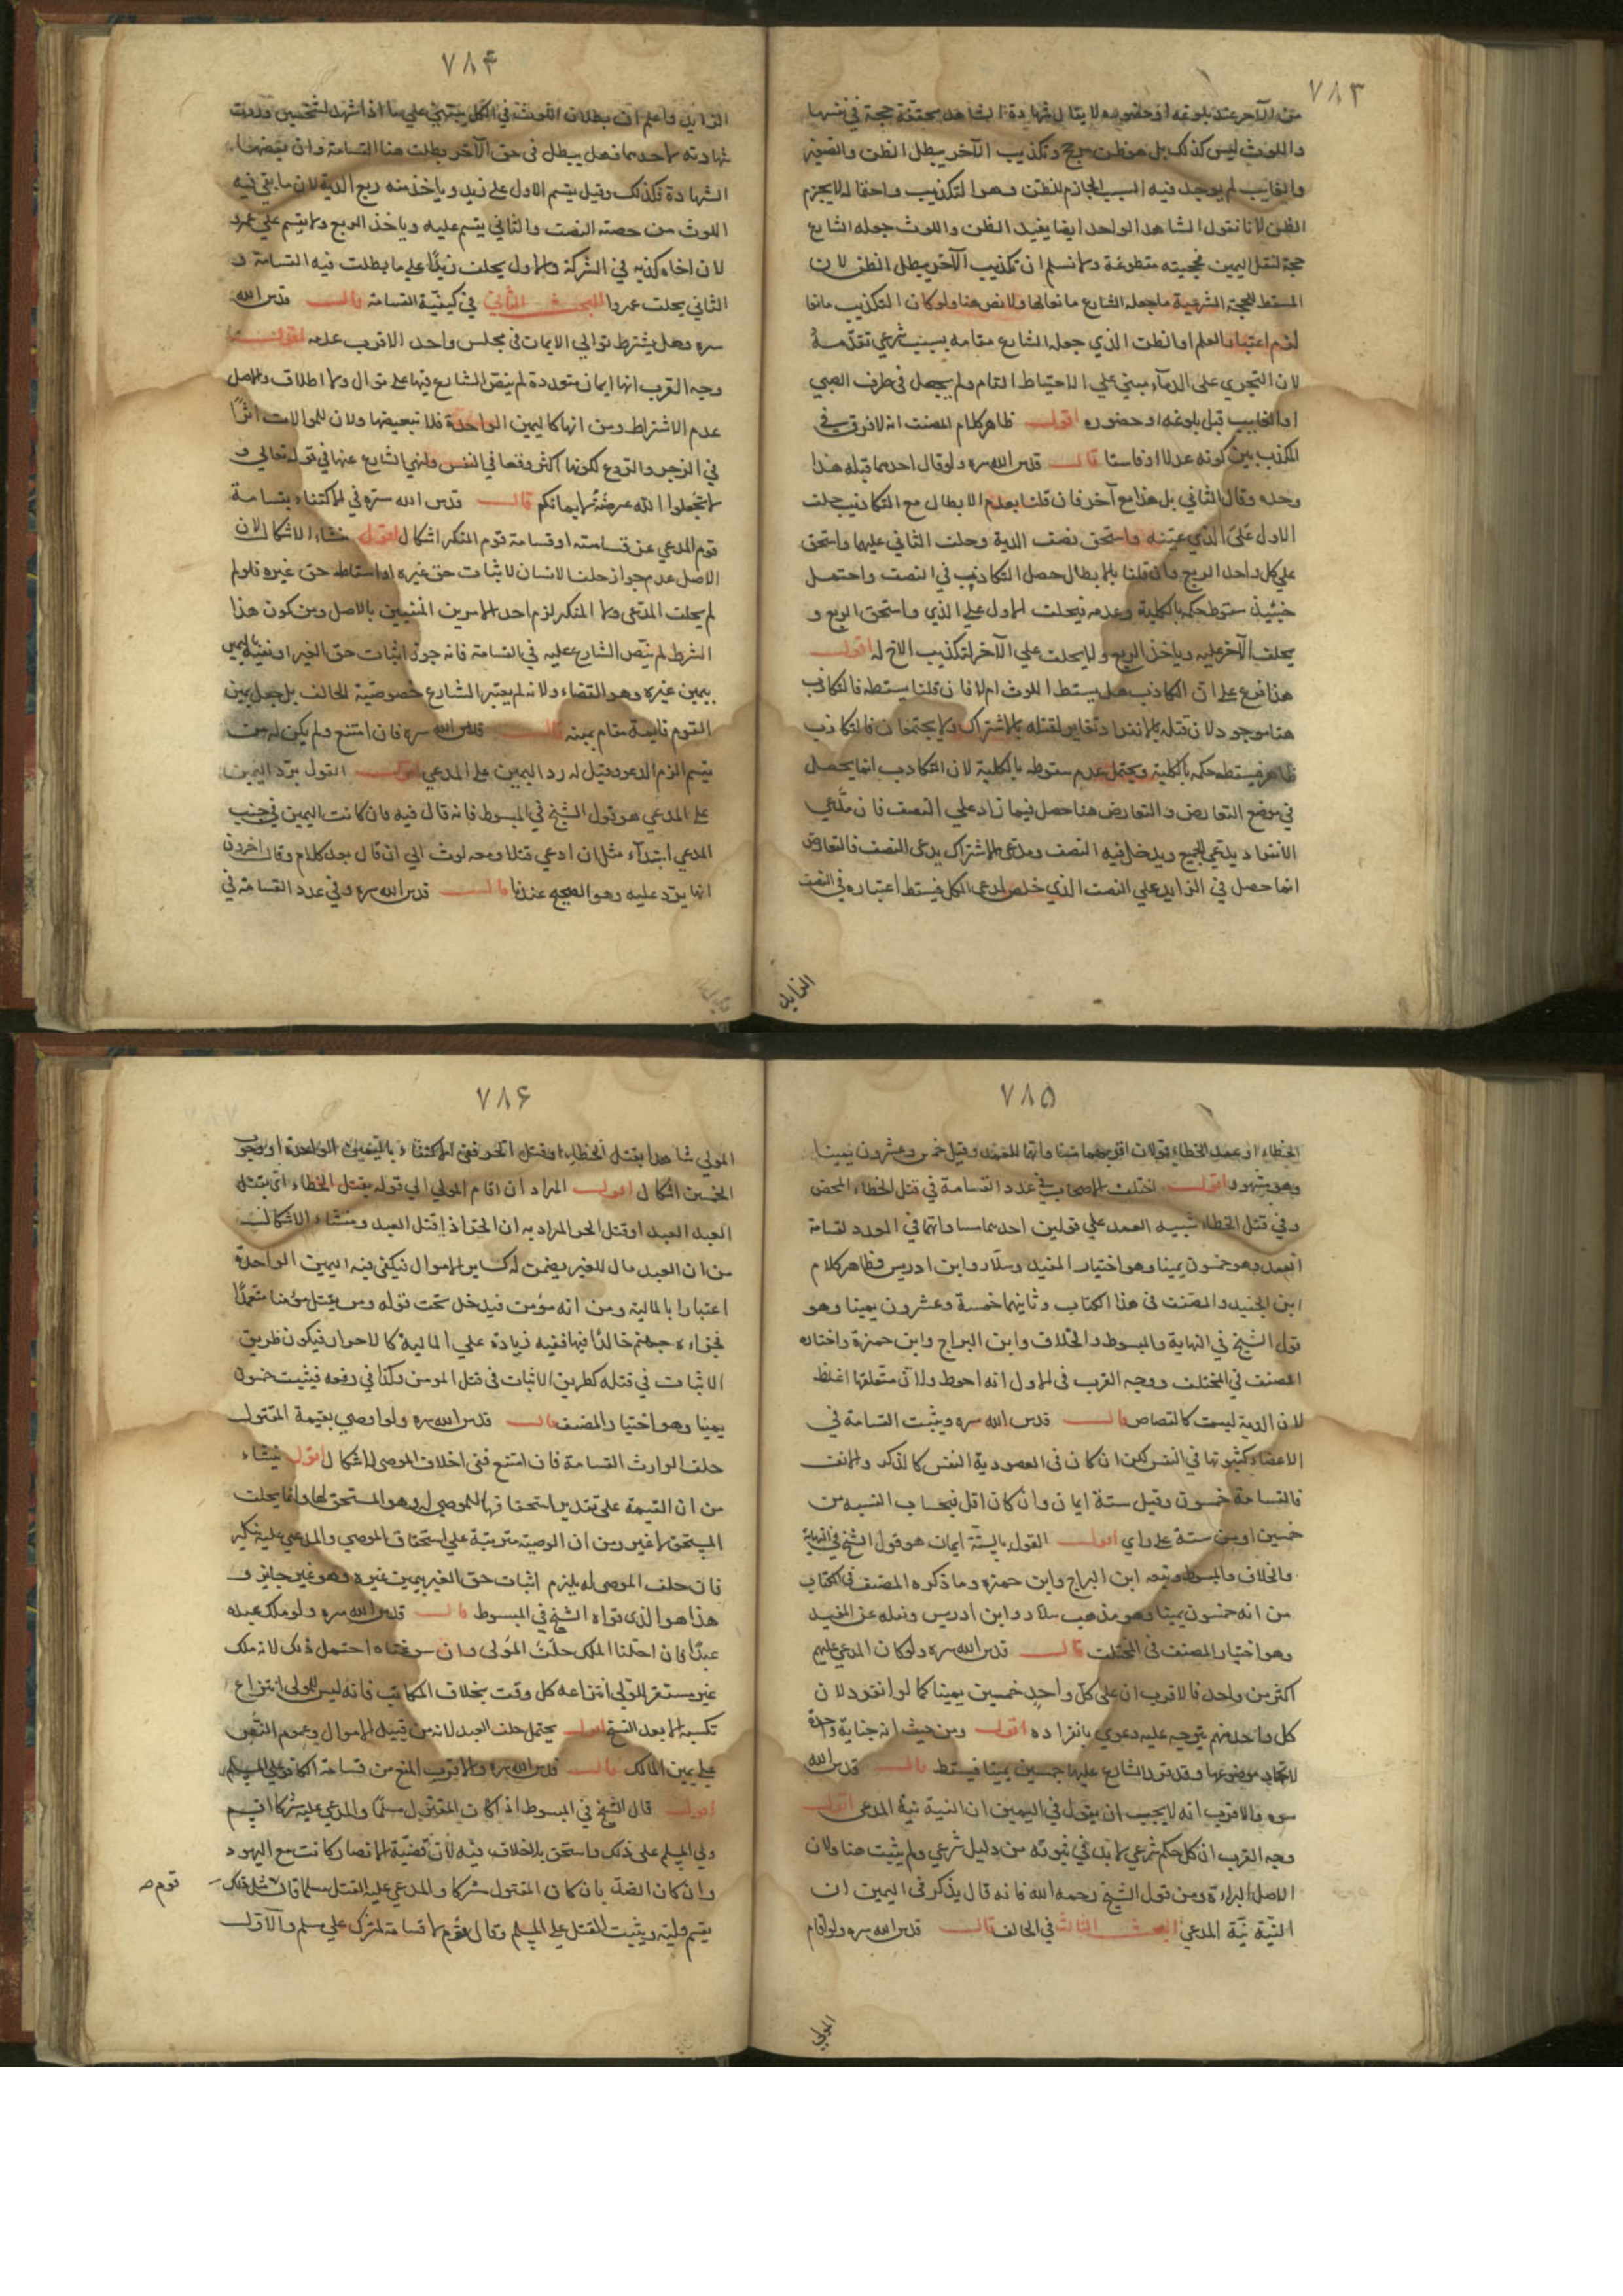 ٧٨٣
من الآخر عند بلوغه او حضوره لا يقال شهادة الشاهد حجة في نفسها
واللوث ليس كذلك بل هو ظن مرجح وتكذيب الآخر يبطل الظن والصغير
والغايب لم يوجد فيه السبب الجازم للظن وهو التكذيب واحتماله لا يجزم
الظن لانا نقول الشاهد الواحد ايضا يفيد الظن واللوث جعله الشارع
حجة لنقل اليمين فحجيته مقطوعة ولا نسلم ان تكذيب الآخر يبطل الظن لان
المسقط للحجة الشرعية ما جعله الشارع مانعا لها ولا نص هنا ولو كان التكذيب مانعا
لزم اعتبار العلم او الظن الذي جعله الشارع مقامه بسبب شرعي تقدمه
لان التجري على الدماء مبني على الاحتياط التام ولم يحصل في طرف الصبي
او الغايب قبل بلوغه او حضوره اقول ظاهر كلام المصنف انه لا فرق في
المكذب بين كونه عدلا او فاسقا قال قدس الله سره ولو قال احدهما قتله هذا
وحده وقال الثاني بل هذا مع آخر فان قلنا بعدم الابطال مع التكاذب حلف
الاول على الذي عينه واستحق نصف الدية وحلف الثاني عليهما واستحق
على كل واحد الربع وان قلنا بالابطال حصل التكاذب في النصف واحتمل
حينئذ سقوط حكمه بالكلية وعدمه فيحلف الاول على الذي واستحق الربع و
يحلف الآخر عليه وياخذ الربع ولا يحلف على الآخر لتكذيب الاخ له اقول
هذا فرع على ان التكاذب هل يسقط اللوث ام لا فان قلنا يسقطه فالتكاذب
هنا موجود لان قتله بالانفراد مغاير لقتله بالاشتراك ولا يجتمعان فالتكاذب
ظاهر فيسقط حكمه بالكلية ويحتمل عدم سقوطه بالكلية لان التكاذب انما يحصل
في موضع التعارض والتعارض هنا حصل فيما زاد على النصف فان مدعي
الانفراد يدعي الجميع ويدخل فيه النصف ومدعي الاشتراك يدعي النصف فالتعارض
انما حصل في الزايد على النصف الذي خلص لمدعي الكل فيسقط اعتباره في النصف
الزايد
٧٨۴
الزايد واعلم ان بطلان اللوث في الكل يبتني على ما اذا شهد لشخصين وردت
شهادته لاحدهما فهل يبطل في حق الآخر بطلت هنا القسامة وان بعضنا
الشهادة فكذلك وقيل يقسم الاول على زيد وياخذ منه ربع الدية لان ما بقي فيه
اللوث من حصته النصف والثاني يقسم عليه وياخذ الربع ولا يقسم على عمرو
لان اخاه كذبه في الشركة والاول يحلف زيدا على ما بطلت فيه القسامة و
الثاني يحلف عمروا المبحث الثاني في كيفية القسامة قال قدس الله
سره وهل يشترط توالي الايمان في مجلس واحد الاقرب عدمه اقول
وجه القرب انها ايمان متعددة لم ينص الشارع فيها على توال ولا اطلاق والاصل
عدم الاشتراط ومن انها كاليمين الواحدة فلا تبعيضها ولان للموالات اثرا
في الزجر والردع لكونها اكثر وقعا في النفس ولنهي الشارع عنها في قوله تعالى و
لا تجعلوا الله عرضة لايمانكم قال قدس الله سره في الاكتفاء بقسامة
قوم المدعي عن قسامته او قسامة قوم المنكر اشكال اقول منشاء الاشكال لان
الاصل عدم جواز حلف الانسان لاثبات حق غيره او اسقاط حق غيره فلو لم
لم يحلف المدعي ولا المنكر لزم احد الامرين المنفيين بالاصل ومن كون هذا
الشرط لم ينص الشارع عليه في القسامة فانه جوز اثبات حق الغير او نفيه باليمين
بيمين غيره وهو القضاء ولانه لم يعتبر الشارع خصوصية الحالف بل جعل يمين
القوم قايمة مقام يمينه قال قدس الله سره فان امتنع ولم يكن له من
يقسم الزم الدعوى وقيل له رد اليمين على المدعي اقول القول برد اليمين
على المدعي هو قول الشيخ في المبسوط فانه قال فيه فان كانت اليمين في جنب
المدعي ابتداء مثل ان ادعي قتلا ومعه لوث الى ان قال بعد كلام وقال اخرون
انها يرد عليه وهو الصحيح عندنا قال قدس الله سره وفي عدد القسامة في
٧٨۵
الخطاء او عمد الخطاء قولان اقربهما مساواتها للعمد وقيل خمس وعشرون يمينا
وهو مشهور اقول اختلف الاصحاب في عدد القسامة في قتل الخطاء المحض
وفي قتل الخطاء شبيه العمد على قولين احدهما مساواتهما في العدد لقسامة
العمد وهو خمسون يمينا وهو اختيار المفيد وسلار وابن ادريس وظاهر كلام
ابن الجنيد والمصنف في هذا الكتاب وثانيهما خمسة وعشرون يمينا وهو
قول الشيخ في النهاية والمبسوط والخلاف وابن البراج وابن حمزة واختاره
المصنف في المختلف ووجه القرب في الاول انه احوط ولان متعلقها اغلظ
لان الدية ليست كالقصاص قال قدس الله سره ويثبت القسامة في
الاعضاء كثبوتها في النفس لكن ان كان في العضو دية النفس كالذكر والانف
فالقسامة خمسون وقيل ستة ايمان وان كان اقل فبحساب النسبه من
خمسين او من ستة على راي اقول القول بالستة ايمان هو قول الشيخ في النهاية
والخلاف والمبسوط وتبعه ابن البراج وابن حمزه وما ذكره المصنف في الكتاب
من انه خمسون يمينا وهو مذهب سلار وابن ادريس ونقله عن المفيد
وهو اختيار المصنف في المختلف قال قدس الله سره ولو كان المدعى عليهم
اكثر من واحد فالاقرب ان على كل واحد خمسين يمينا كما لو انفرد لان
كل واحد منهم يتوجه عليه دعوى بانفراده اقول ومن حيث انه جناية واحدة
لاتحاد موضوعها وقد قدر الشارع عليها خمسين يمينا فيسقط قال قدس الله
سره والاقرب انه لا يجب ان يقول في اليمين ان النية نية المدعي اقول
وجه القرب ان كل حكم شرعي لا بد في ثبوته من دليل شرعي ولم يثبت هنا ولان
الاصل البراءة ومن قول الشيخ رحمه الله فانه قال يذكر في اليمين ان
النية نية المدعي البحث الثالث في الحالف قال قدس الله سره ولو اقام
المولى
٧٨۶
المولى شاهدا بقتل الخطاء او قتل الحر ففي الاكتفاء باليمين الواحدة او وجوب
الخمسين اشكال اقول المراد ان اقام المولى الى قوله بقتل الخطاء اي بقتل
العبد العبد او قتل الحر المراد به ان الحر اذا قتل العبد ومنشاء الاشكال
من ان العبد مال للغير يضمن له كساير الاموال فيكفي فيه اليمين الواحدة
اعتبارا بالمالية ومن انه مؤمن فيدخل تحت قوله ومن يقتل مؤمنا متعمدا
فجزاءه جهنم خالدا فيها ففيه زيادة على المالية كالاحرار فيكون طريق
الاثبات في قتله كطريق الاثبات في قتل المومن وكذا في رفعه فيثبت خمسون
يمينا وهو اختيار المصنف قال قدس الله سره ولو اوصى بقيمة المقتول
حلف الوارث القسامة فان امتنع ففي احلاف الموصى له اشكال اقول ينشاء
من ان القيمة على تقدير استحقاقها للموصى له وهو المستحق لها وانما يحلف
المستحق لا غير ومن ان الوصية مترتبة على استحقاق الموصي والمدعى عليه منكر
فان حلف الموصى له يلزم اثبات حق الغير بيمين غيره وهو غير جايز و
هذا هو الذي قواه الشيخ في المبسوط قال قدس الله سره ولو ملك عبده
عبدا فان احلنا الملك حلف المولى وان سوغناه احتمل ذلك لانه ملك
غير مستقر للمولى انتزاعه كل وقت بخلاف المكاتب فانه ليس للمولى انتزاع
تكسبه الا بعد الفسخ اقول يحتمل حلف العبد لانه من قبيل الاموال وعموم النص
على يمين المالك قال قدس الله سره والاقرب المنع من قسامة الكافر على المسلم
اقول قال الشيخ في المبسوط اذا كان المقتول مسلما والمدعى عليه مشركا اقسم
ولي المسلم على ذلك واستحق بلا خلاف فيه لان قضية الانصار كانت مع اليهود
وان كان الضد بان كان المقتول مشركا والمدعى عليه القتل مسلما قال مثل ذلك
قوم صح
يقسم وليه ويثبت القتل على المسلم وقال قوم لا قسامة لمشرك على مسلم والاول